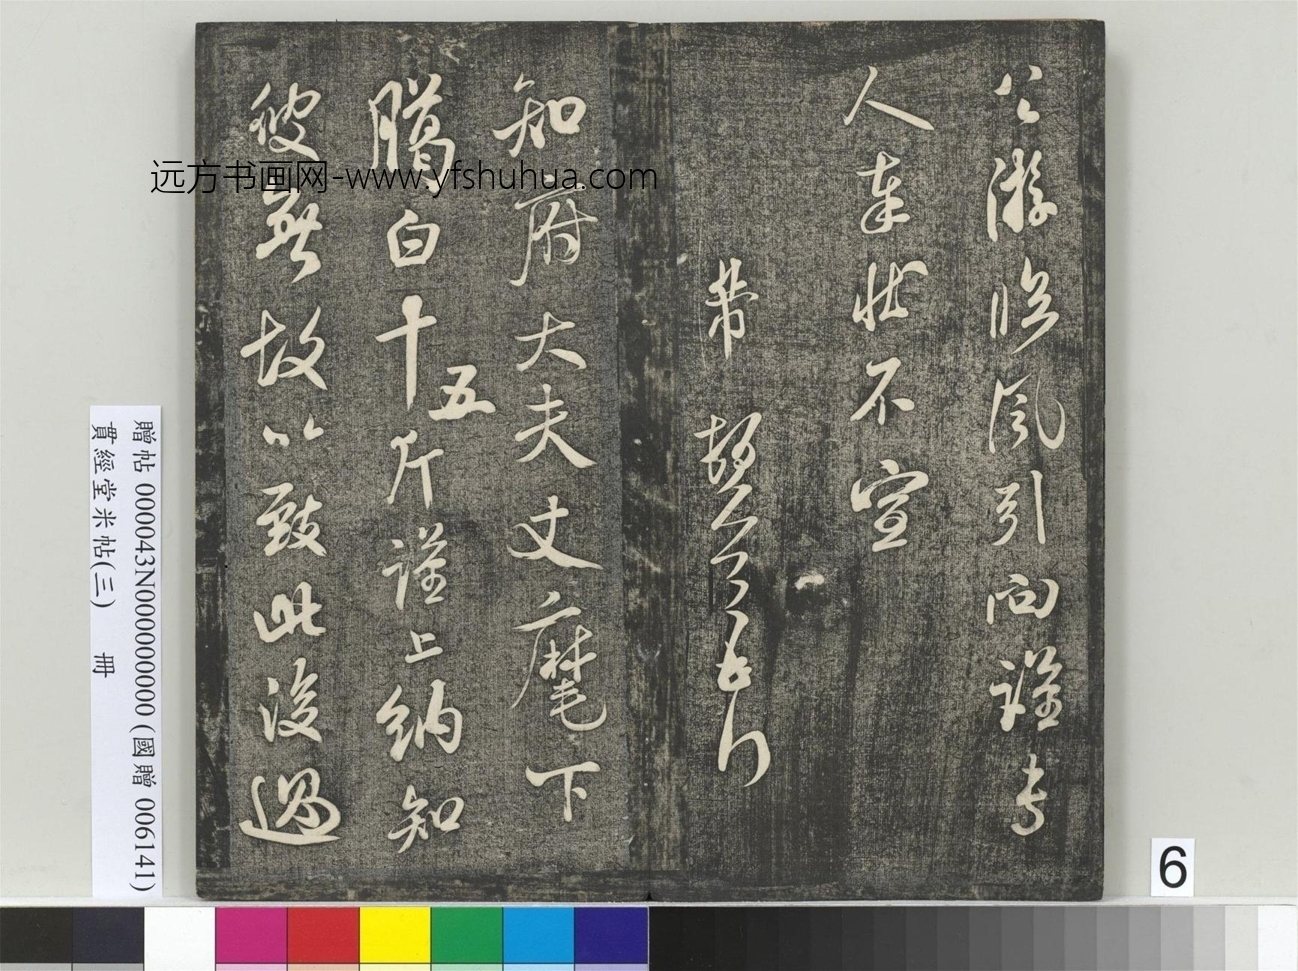 公游臨風引向謹專
人奉狀不宣
芾
知府大夫丈麾下
臈白十五斤謹上納知
彼無故以致此後過
远方书画网-www.yfshuhua.com
贈帖 000043N000000000 (國贈 006141)
貫經堂米帖(三) 冊
6